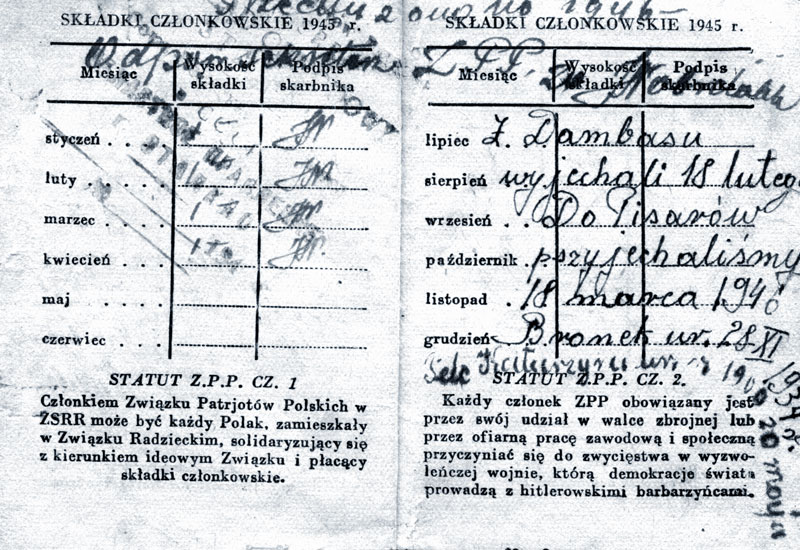 SKŁADKI CZŁONKOWSKIE 1945 r.
Miesiąc
Wysokość składki
Podpis skarbnika
styczeń . . .
luty . . . .
marzec . . .
kwiecień . .
maj . . . .
czerwiec . .
STATUT Z.P.P. CZ. 1
Członkiem Związku Patrjotów Polskich w
ZSRR może być każdy Polak, zamieszkały
w Związku Radzieckim, solidaryzujący się
z kierunkiem ideowym Związku i płacący
składki członkowskie.
1946
SKŁADKI CZŁONKOWSKIE 1945 r.
Z.P.P.
Miesiąc
Wysokość składki
Podpis skarbnika
lipiec Z. Dambasu
sierpień wyjechali 18 lutego
wrzesień . . Do Pisarów
październik . przyjechaliśmy
listopad . 18 marca 1946
grudzień Bronek ur. 28 XI
1934 r.
STATUT Z.P.P. CZ. 2.
Każdy członek ZPP obowiązany jest
przez swój udział w walce zbrojnej lub
przez ofiarną pracę zawodową i społeczną
przyczyniać się do zwycięstwa w wyzwo-
leńczej wojnie, którą demokracje świata
prowadzą z hitlerowskimi barbarzyńcami.